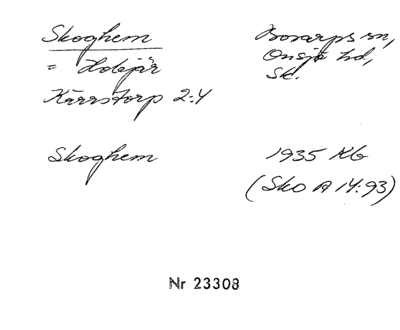 Skoghem
Bosarps sn,
=
Onsjö hd,
Sk.
Kärrstorp 2:4
Skoghem
1935 KG
(Sko A 14:93)
Nr 23308